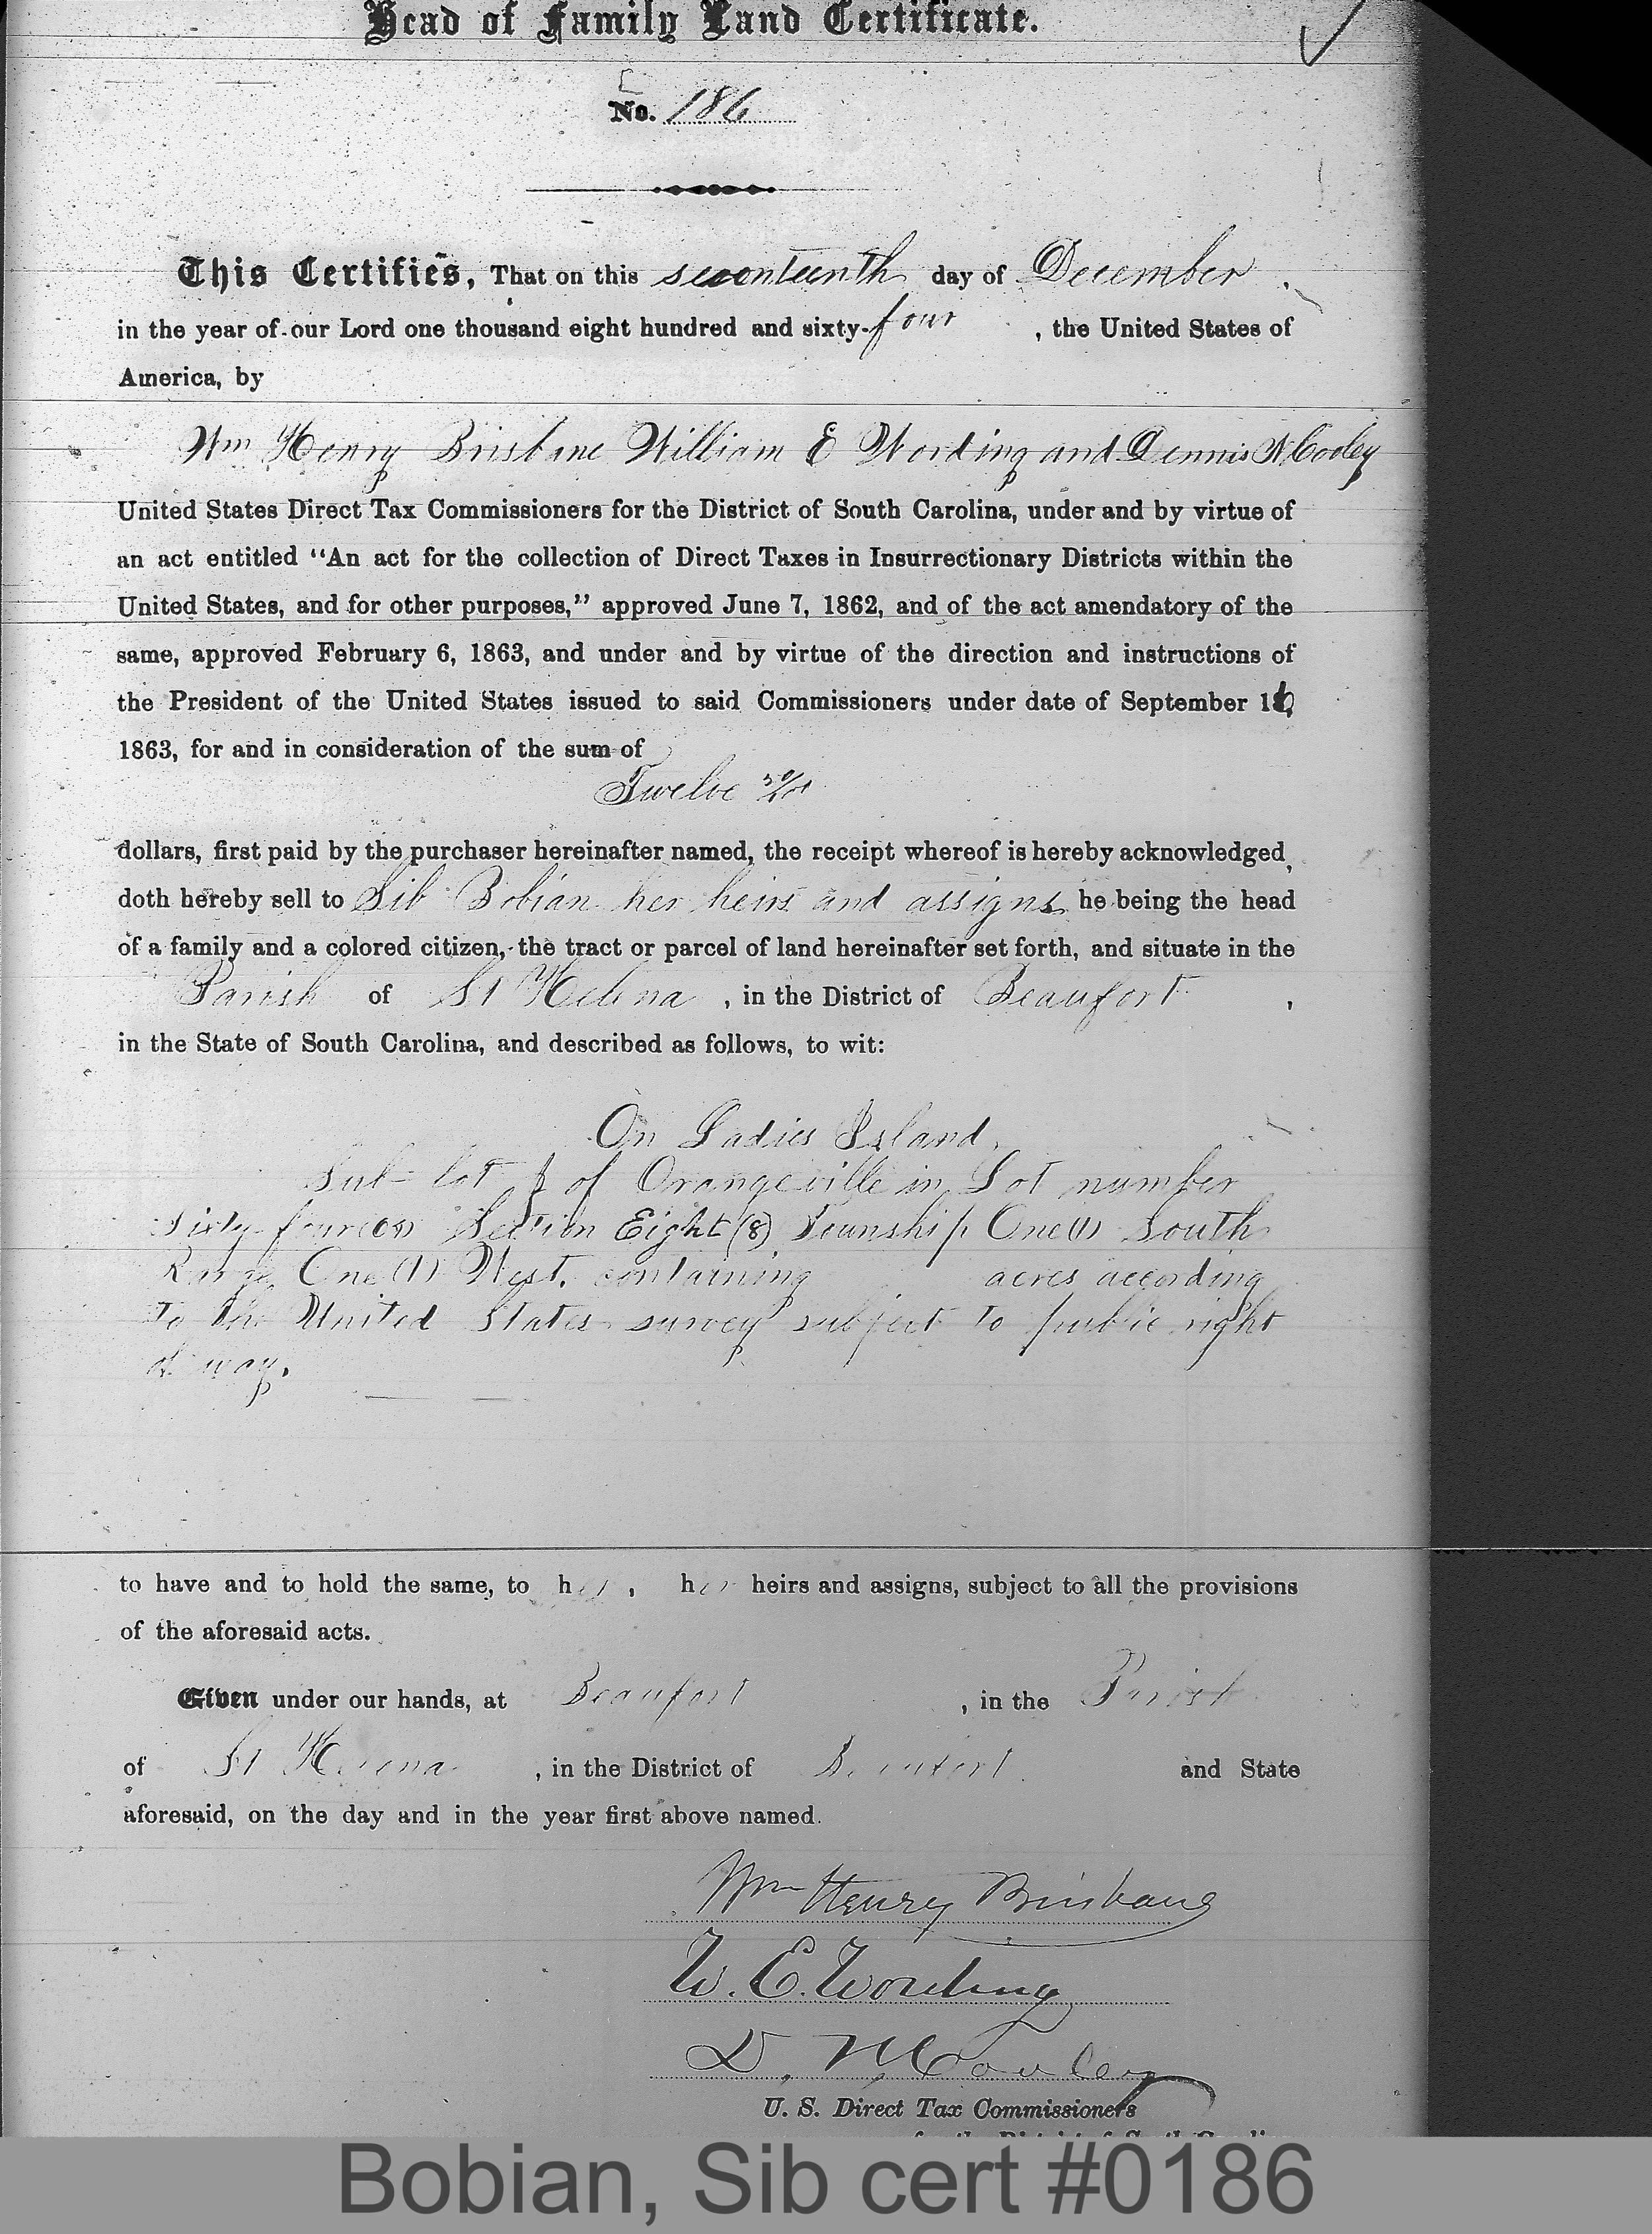 Head of Family Land Certificate.
No. 186
This Certifies, That on this seventeenth day of December,
in the year of our Lord one thousand eight hundred and sixty-four, the United States of
America, by
Wm Henry Brisbane William E Wording and Dennis N Cooley
United States Direct Tax Commissioners for the District of South Carolina, under and by virtue of
an act entitled "An act for the collection of Direct Taxes in Insurrectionary Districts within the
United States, and for other purposes," approved June 7, 1862, and of the act amendatory of the
same, approved February 6, 1863, and under and by virtue of the direction and instructions of
the President of the United States issued to said Commissioners under date of September 16,
1863, for and in consideration of the sum of
Twelve
dollars, first paid by the purchaser hereinafter named, the receipt whereof is hereby acknowledged,
doth hereby sell to Sib Bobian her heirs and assigns he being the head
of a family and a colored citizen, the tract or parcel of land hereinafter set forth, and situate in the
Parish of St Helena, in the District of Beaufort,
in the State of South Carolina, and described as follows, to wit:
On Ladies Island,
Sub-lot of Orangeville in Lot number
Sixty-four (64) Section Eight (8) Township One (1) South
Range One (1) West, containing acres according
to the United States survey subject to public right
of way.
to have and to hold the same, to her, her heirs and assigns, subject to all the provisions
of the aforesaid acts.
Given under our hands, at Beaufort, in the Parish
of St Helena, in the District of Beaufort and State
aforesaid, on the day and in the year first above named.
Wm Henry Brisbane
W. E. Wording
D. N. Cooley
U. S. Direct Tax Commissioners
Bobian, Sib cert #0186